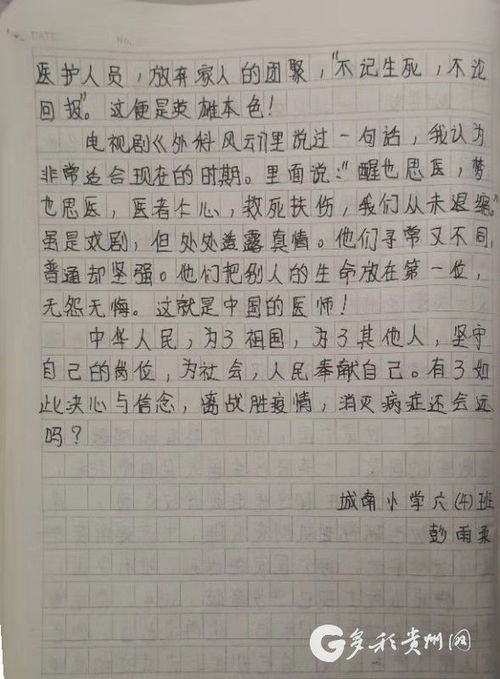 DATE
No.
医护人员，放弃家人的团聚，“不记生死，不论
回报”。这便是英雄本色！
电视剧《外科风云》里说过一句话，我认为
非常适合现在的时期。里面说：“醒也思医，梦
也思医，医者仁心，救死扶伤，我们从未退缩。”
虽是戏剧，但处处透露真情。他们寻常又不同，
普通却坚强。他们把别人的生命放在第一位，
无怨无悔。这就是中国的医师！
中华人民，为了祖国，为了其他人，坚守
自己的岗位，为社会，人民奉献自己。有了如
此决心与信念，离战胜疫情，消灭病症还会远
吗？
城南小学六(4)班
彭雨柔
多彩贵州网